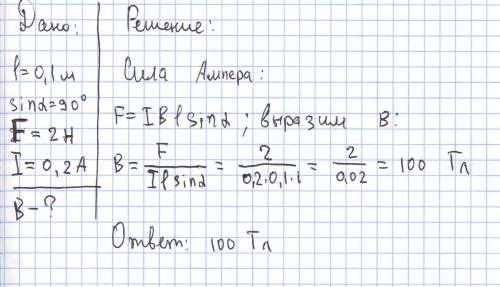 Дано:
l=0,1м
sinα=90°
F=2Н
I=0,2А
B-?
Решение:
Сила Ампера:
F=IBlsinα; выразим B:
B= F/Ilsinα = 2/0,2·0,1·1 = 2/0,02 = 100 Тл
Ответ: 100 Тл